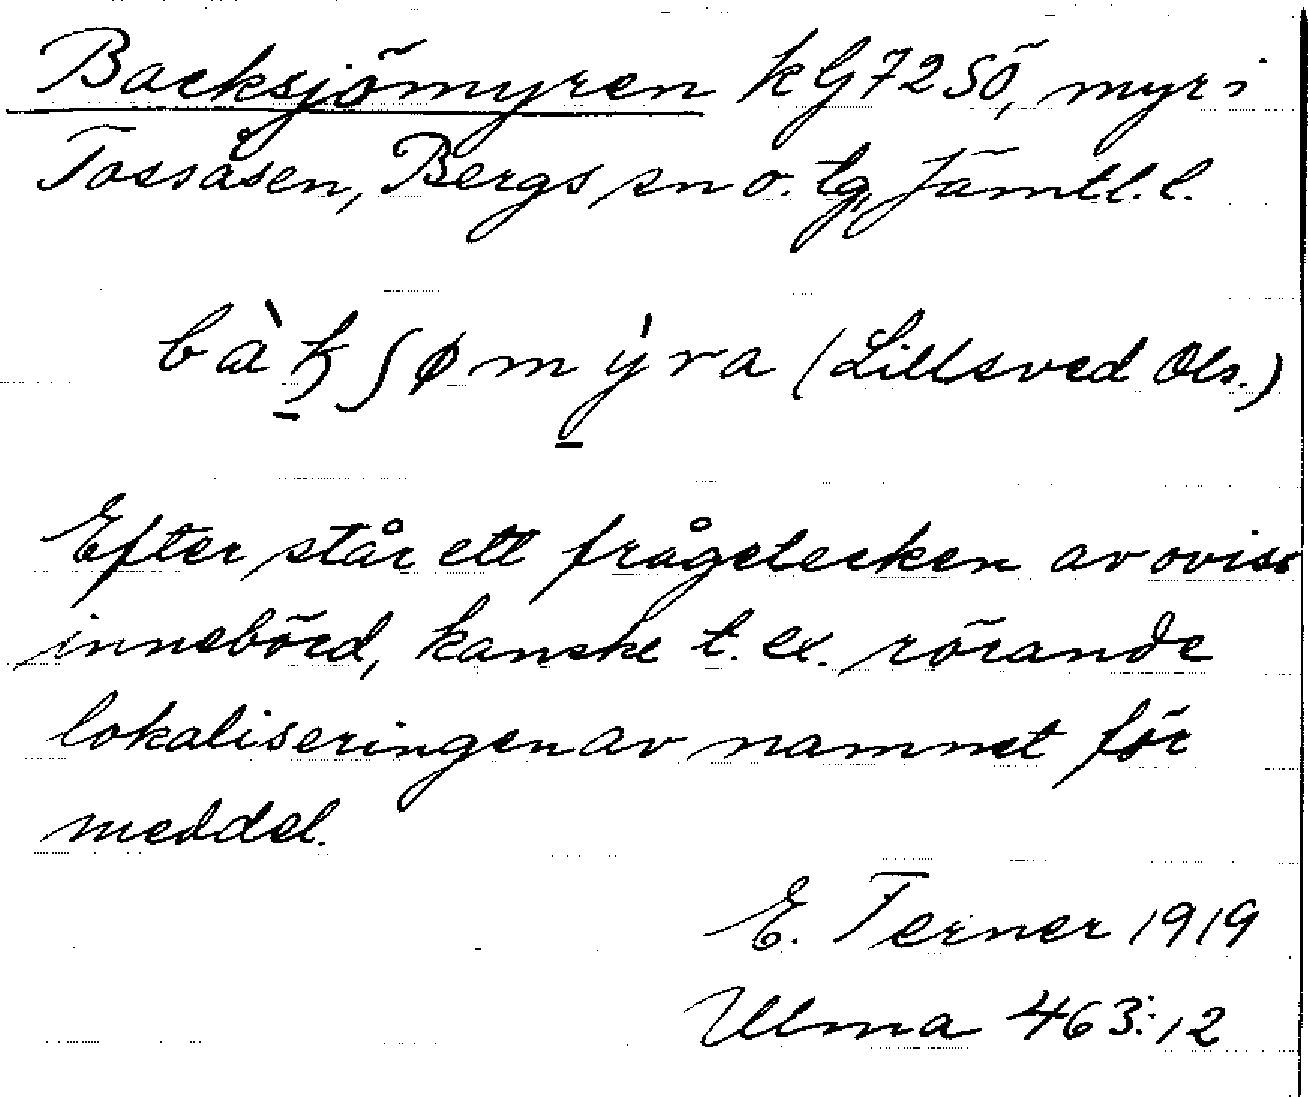 Backsjömyren kG72SÖ, myr i
Tossåsen, Bergs sn o. tg, Jämtl. l.
bàkʃømy̍ra (Lillsved Ols.)
Efter står ett frågetecken av oviss
innebörd, kanske t. ex. rörande
lokaliseringen av namnet för
meddel.
E. Terner 1919
Ulma 463:12